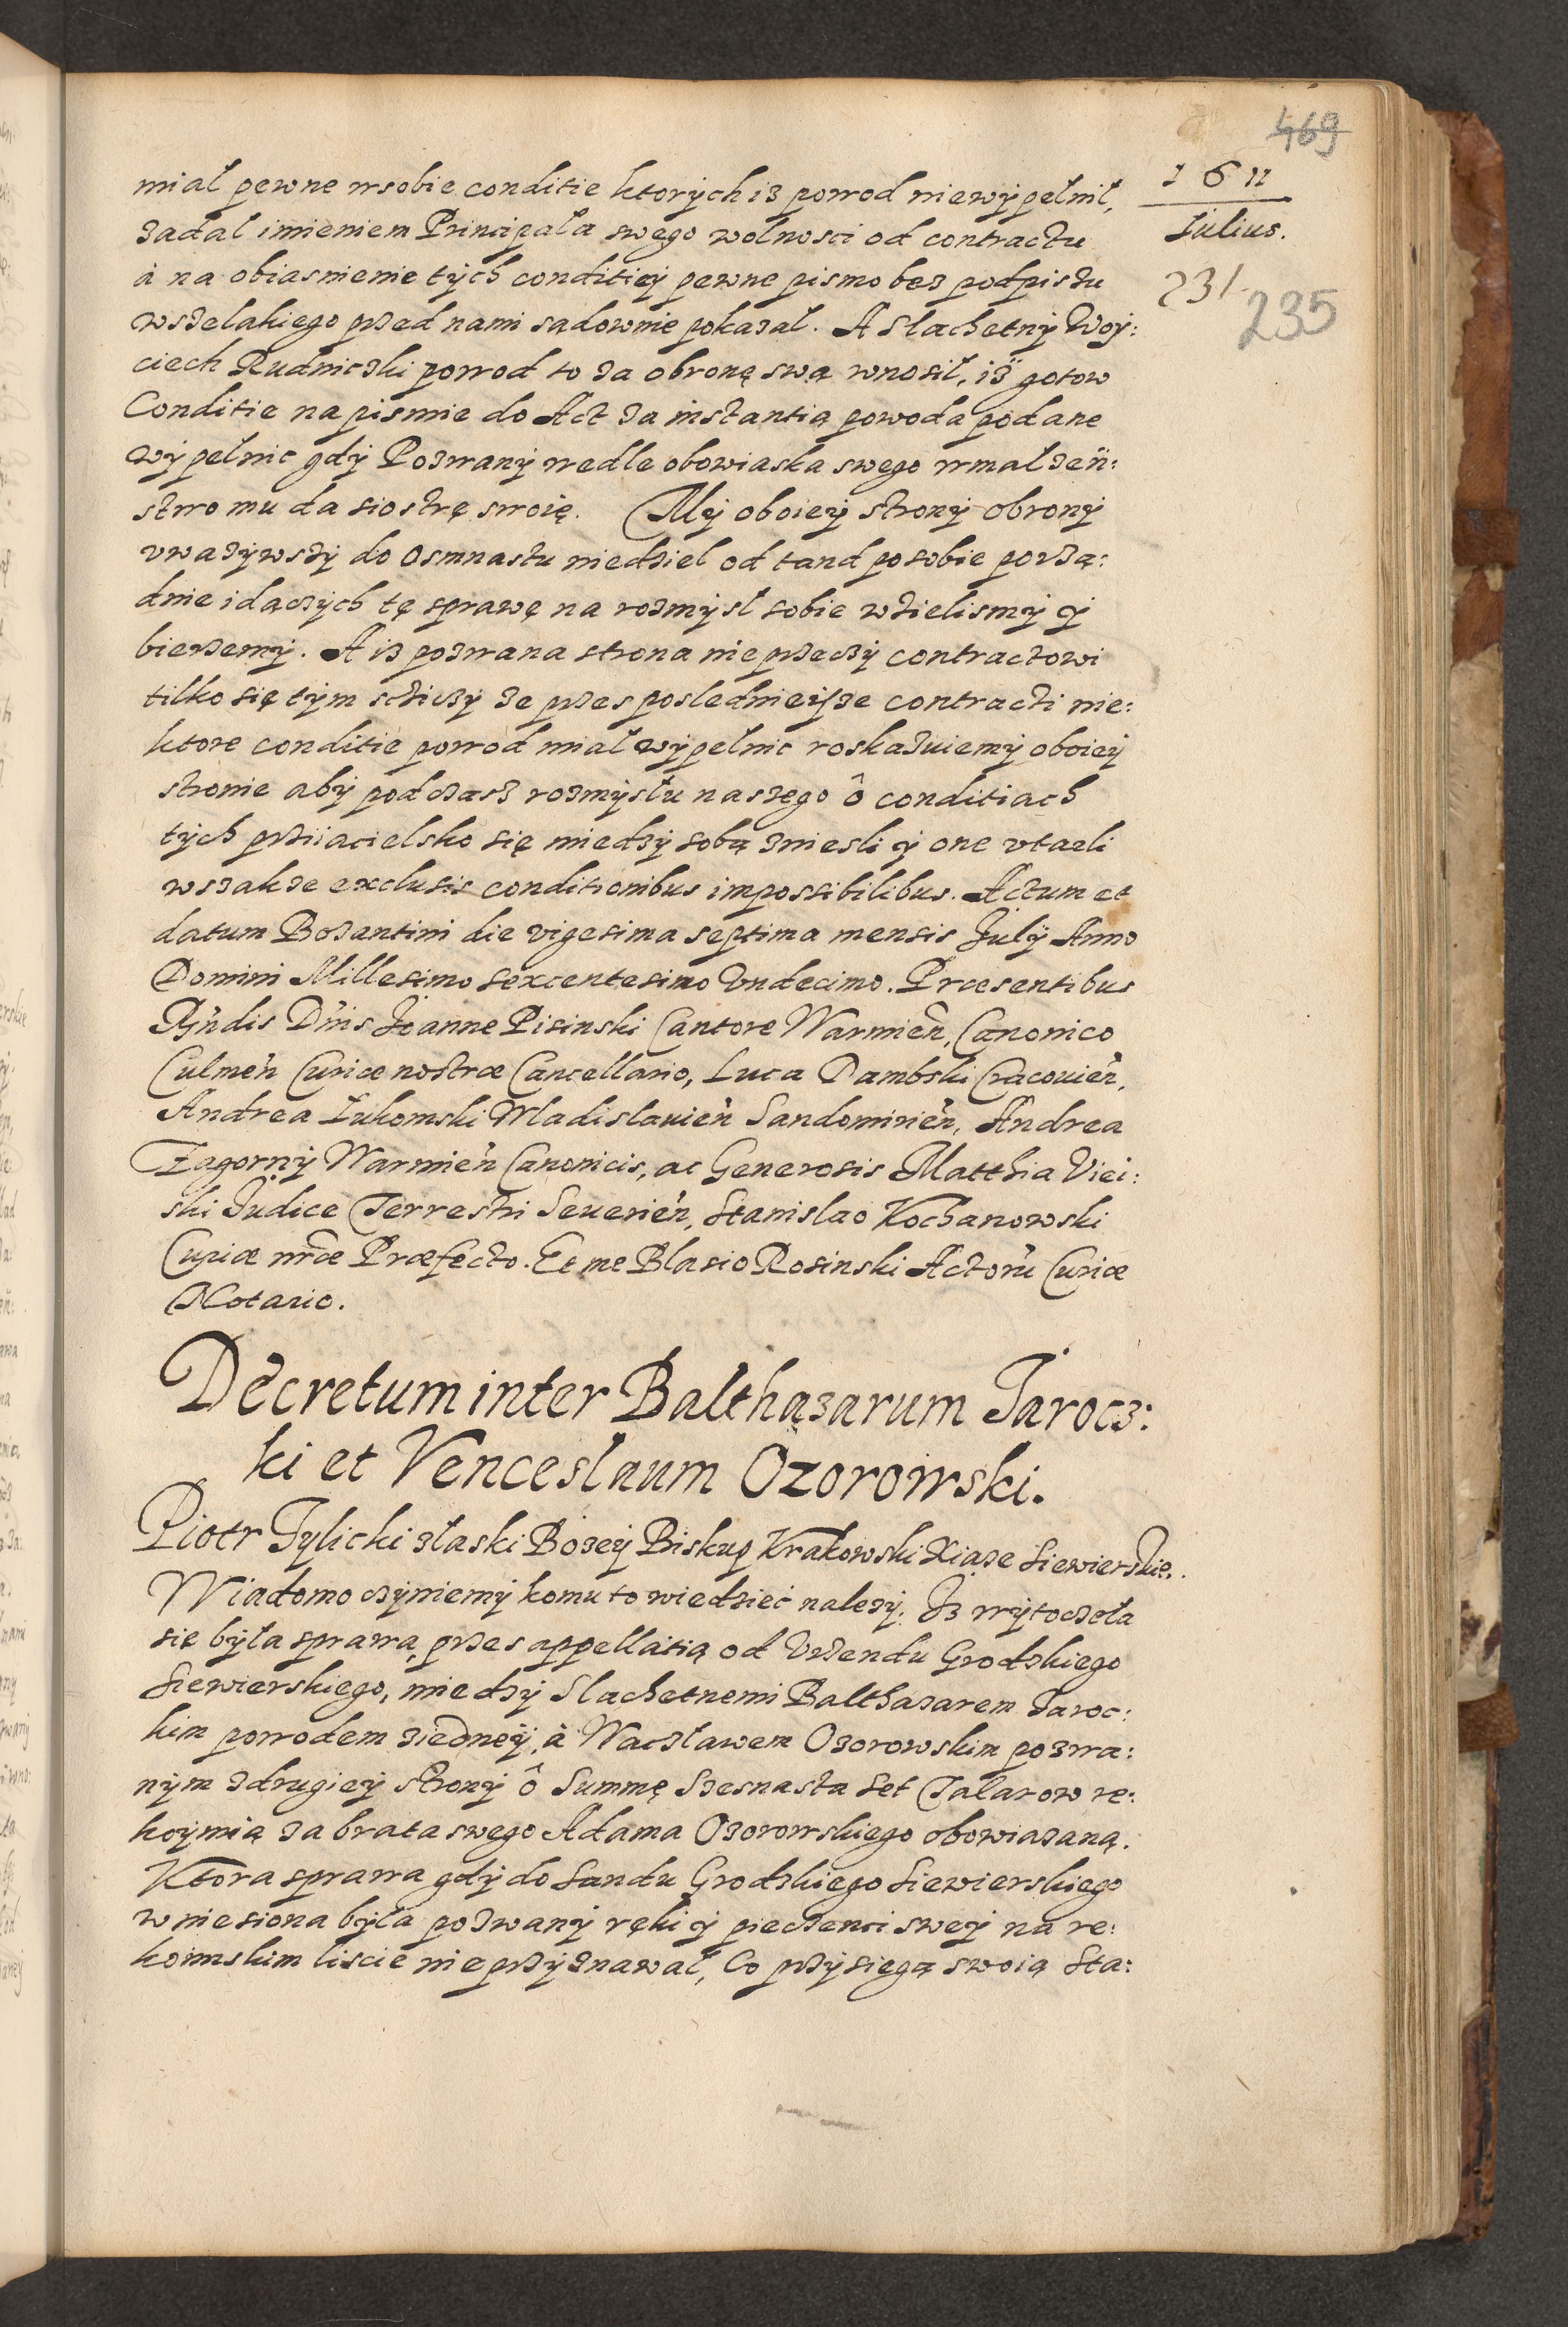 469
1611
Iulius.
231
235
miał pewne wsobie conditie ktorych iz powod niewypełnił,
zadał imieniem Principała swego wolnosci od contractu
à na obiasnienie tych conditiej pewne pismo bez podpisku
wszelakiego przed nami sadownie pokazał. A Slachetny Woy:
ciech Rudniczki powod to za obronę swą wnosił, iż gotow
Conditie na pismie do Act za instantią powoda podane
wypełnic gdy Pozwany wedle obowiaska swego wmalzeń:
stwo mu da siostrę swoię. My oboiey strony obrony
vwazywszy do Osmnastu niedziel od tand po sobie porzą:
dnie idączych tę sprawę na rozmysł sobie wzielismy y
bierzemy. A iz pozwana strona nie przeczy contractowi
tilko się tym scziczy ze przes posledniejsze contracti nie:
ktore conditie powod miał wypełnic roskazuiemy oboiey
stronie aby podczasz rozmysłu naszego ô conditiach
tych prziiacielsko się miedzy sobą zniesli y one vtarli
wszakze exclusis conditionibus impossibilibus. Actum et
datum Bozantini die vigesima septima mensis Julij Anno
Domini Millesimo sexcentesimo Undecimo. Præsentibus
Rndis Dnis Joanne Pisinski Cantore Warmien, Canonico
Culmen Curiæ nostræ Cancellario, Luca Dambski Cracouien,
Andrea Łukomski Wladislauien Sandomirien, Andrea
Zagorny Warmien Canonicis, ac Generosis Matthia Viei:
ski Judice Terrestri Seuerien, Stanislao Kochanowski
Curiæ nræ Præfecto. Et me Blasio Rosinski Actoru Curiæ
Notario.
Decretum inter Balthazarum Jarocz:
ki et Venceslaum Ozorowski.
Piotr Tylicki złaski Bozey Biskup Krakowski Xiąze Siewierskie.
Wiadomo czyniemy komu to wiedzieć nalezy. Jz wytoczeła
się była sprawa, przes appellatią od Vrzendu Grodzkiego
Siewierskiego, miedzy Slachetnemi Balthazarem Jaroc:
kim powodem ziedney, à Waczławem Ozorowskim pozwa:
nym zdrugiey strony ô Summę Szesnasta Set Talarow re:
koymią za brata swego Adama Ozorowskiego obowiazaną.
Ktora sprawa gdy do Sandu Grodzkiego Siewierskiego
wniesiona była pozwany ręki y pieczenci swey na re:
koimskim liscie nieprzyznawał, Co przysiegą swoią Sta: